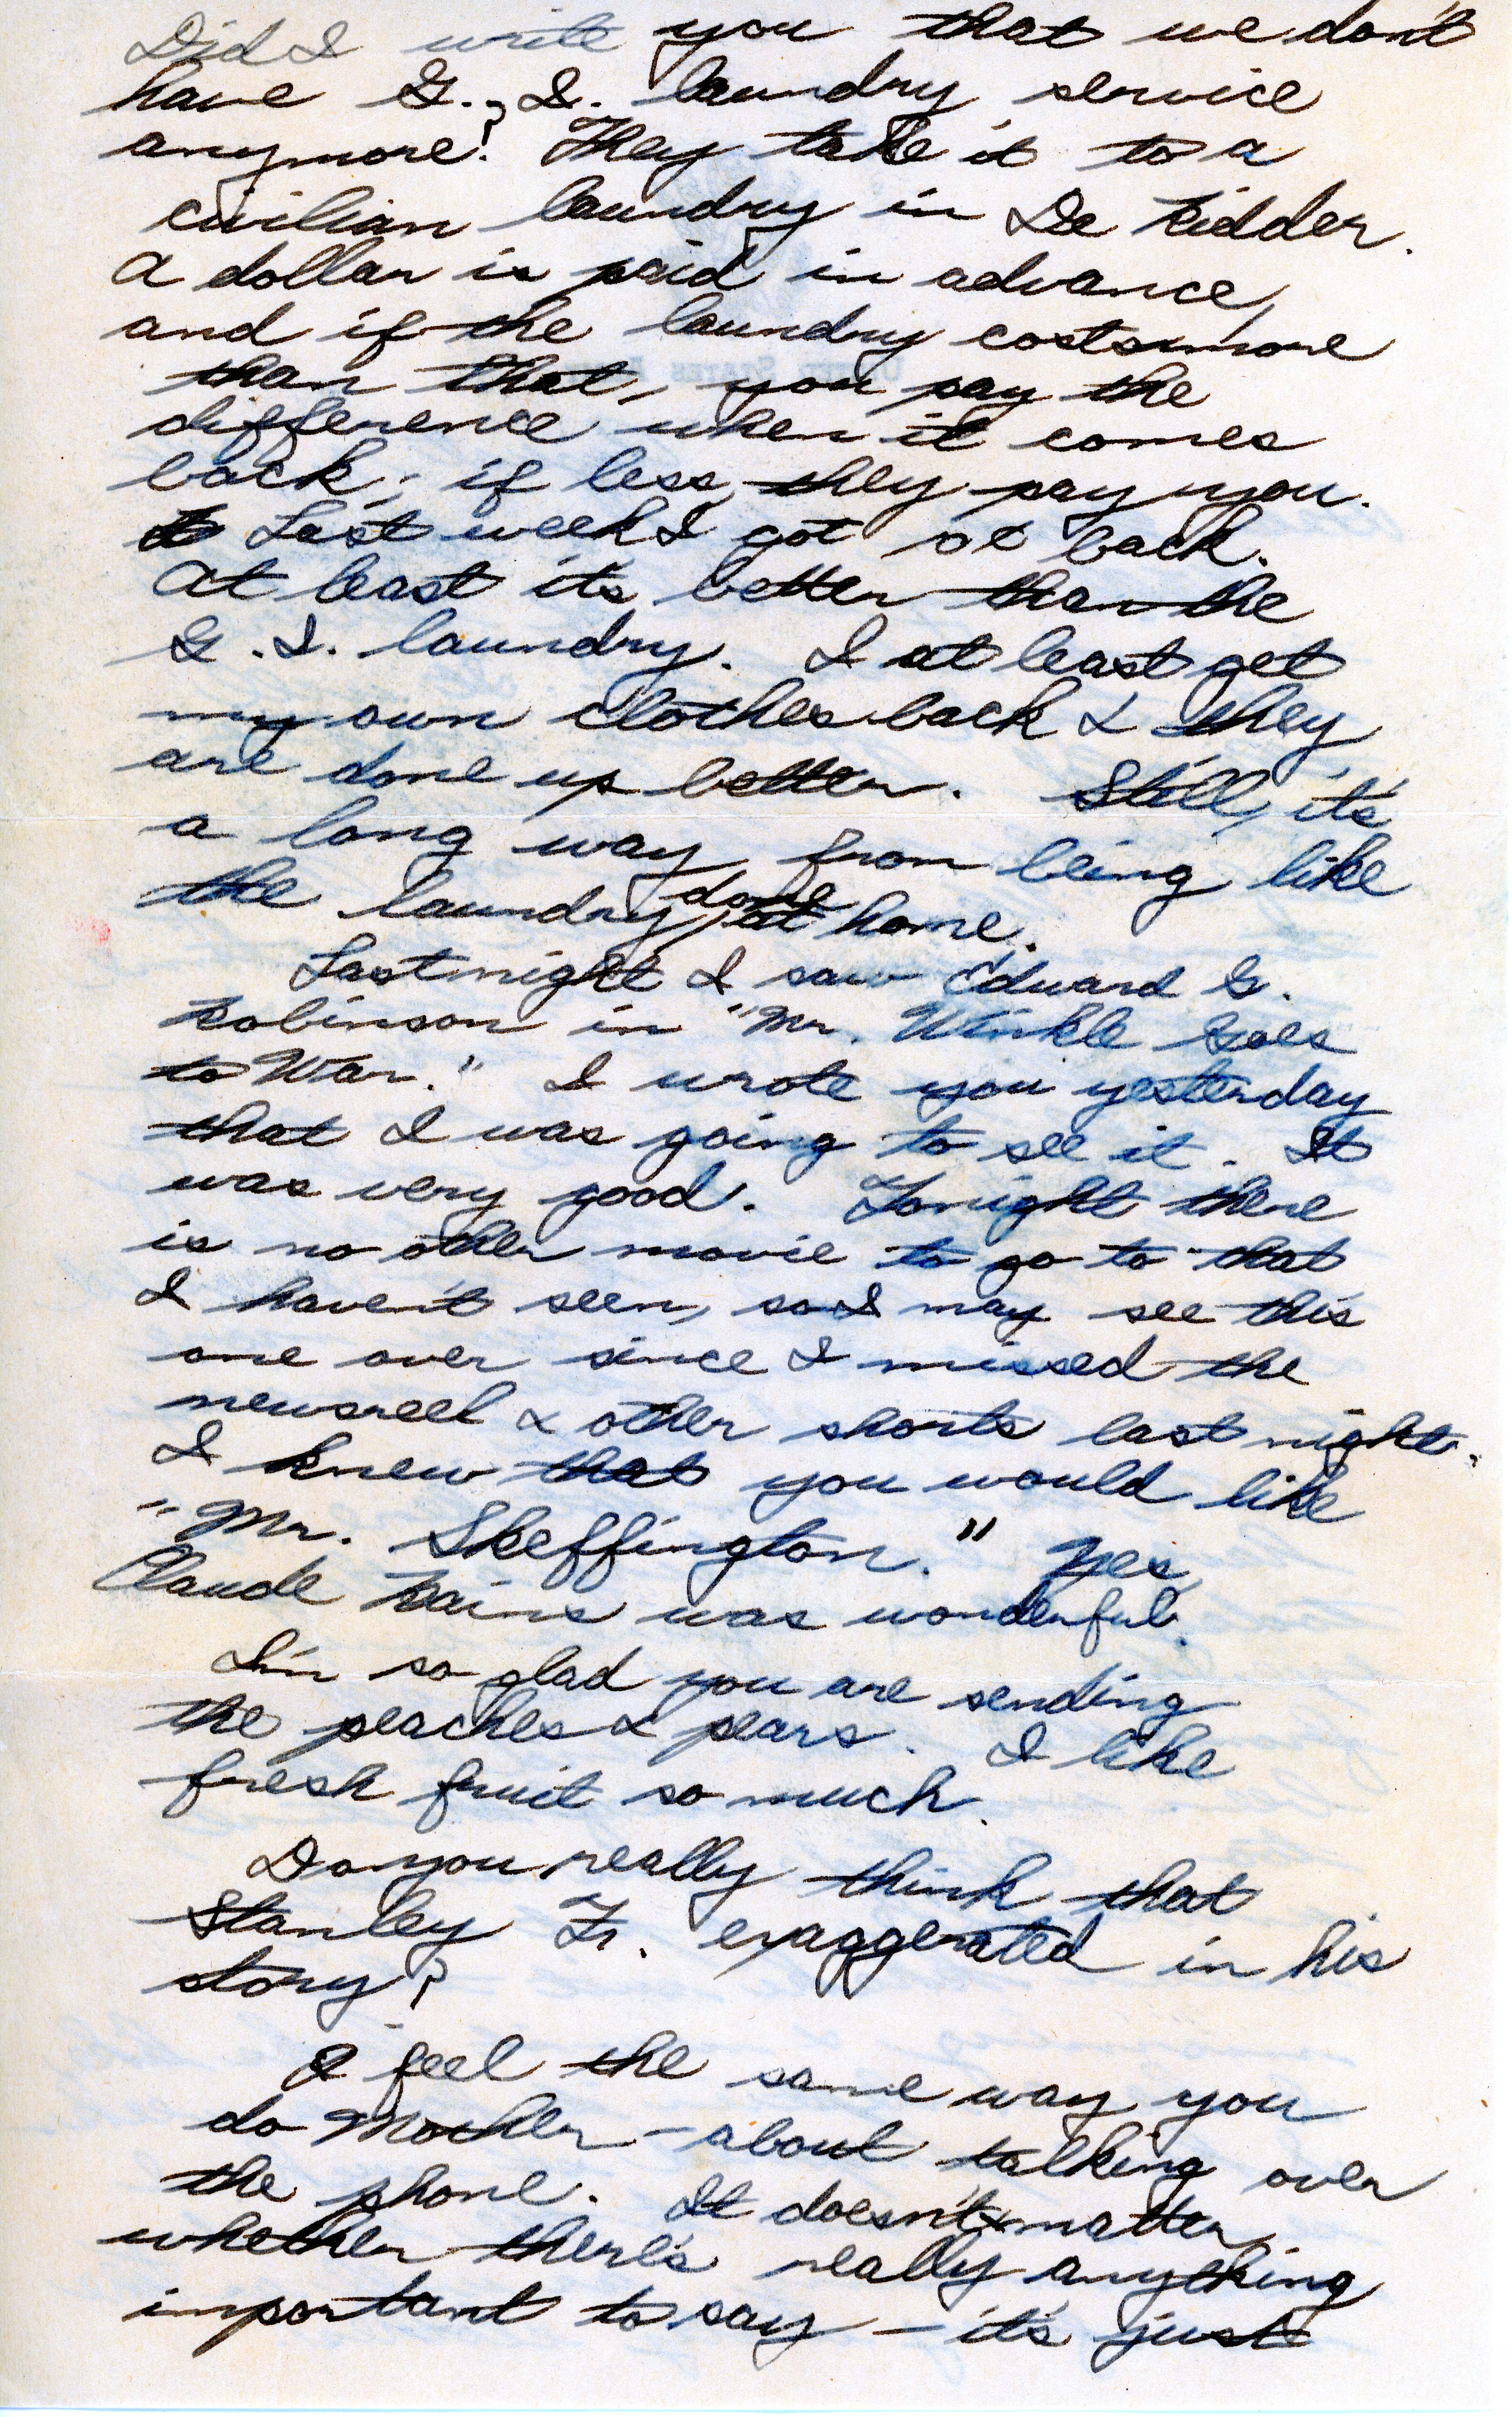 Did I write you that we don't
have G. I. laundry service
anymore? They take it to a
civilian laundry in De Ridder.
A dollar is paid in advance,
and if the laundry costs more
than that, you pay the
difference when it comes
back; if less, they pay you.
Last week I got back.
At least it's better than the
G.I. laundry. I at least get
my own clothes back & they
are done up better. Still, it's
a long way from being like
the laundry done at home.
Last night I saw Edward G.
Robinson in "Mr. Winkle Goes
to War." I wrote you yesterday
that I was going to see it. It
was very good. Tonight there
is no other movie to go to that
I haven't seen, so I may see this
one over since I missed the
newsreel & other shorts last night.
I knew that you would like
"Mr. Skeffington." Yes,
Claude Rains was wonderful.
I'm so glad you are sending
the peaches & pears. I like
fresh fruit so much.
Do you really think that
Stanley Fr. exaggerated in his
story?
I feel the same way you
do Mother - about talking over
the phone. It doesn't matter
whether there's really anything
important to say - it's just